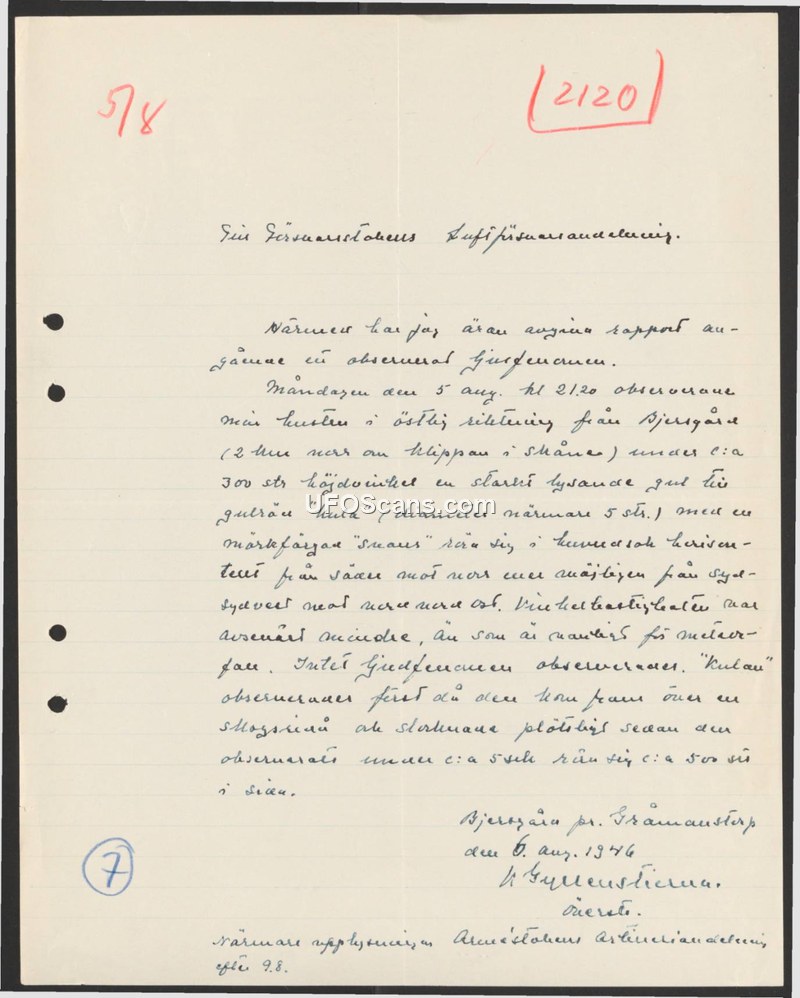 5/8
(2120)
Till Försvarsstabens Luftförsvarsavdelning.
Härmed har jag äran avgiva rapport an-
gående ett observerat ljusfenomen.
Måndagen den 5 aug. kl 2120 observerade
min hustru i östlig riktning från Bjersgård
(2 km norr om Klippan i Skåne) under c:a
300 str höjdvinkel en starkt lysande gul till
gulröd kula (diameter närmare 5 str.) med en
mörkfärgad "svans" röra sig i huvudsak horison-
tellt från söder mot norr eller möjligen från syd-
sydvest mot nord nord ost. Vinkelhastigheten var
avsevärt mindre, än som är vanligt för meteor-
fall. Intet ljudfenomen observerades. "Kulan"
observerades först då den kom fram över en
skogsridå och slocknade plötsligt sedan den
observerats under c:a 5 sek röra sig c:a 500 str
i sida.
Bjersgård pr. Gråmanstorp
den 6. aug. 1946
K Gyllenstierna.
Överste.
Närmare upplysningar Arméstabens Artilleriavdelning
efter 9.8.
7
UFOScans.com